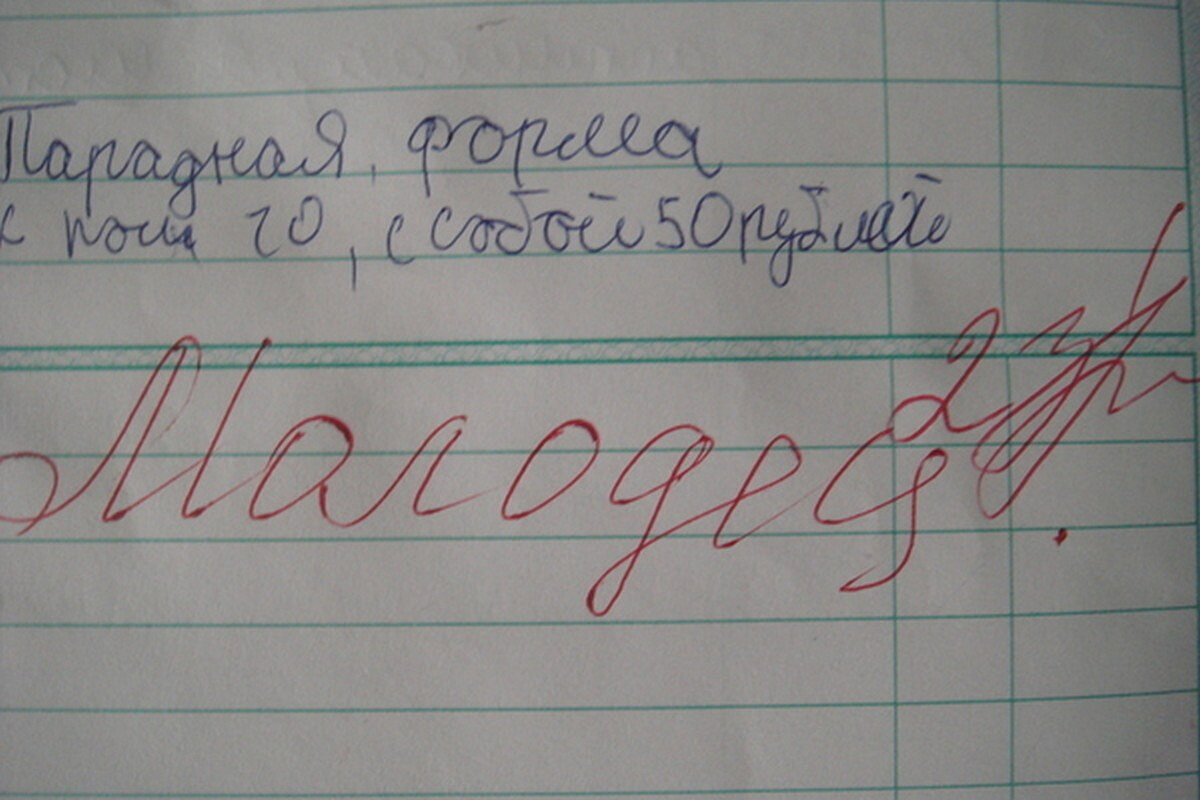 Парадная, форма
к 10, с собой 50 рублей
Малодец!